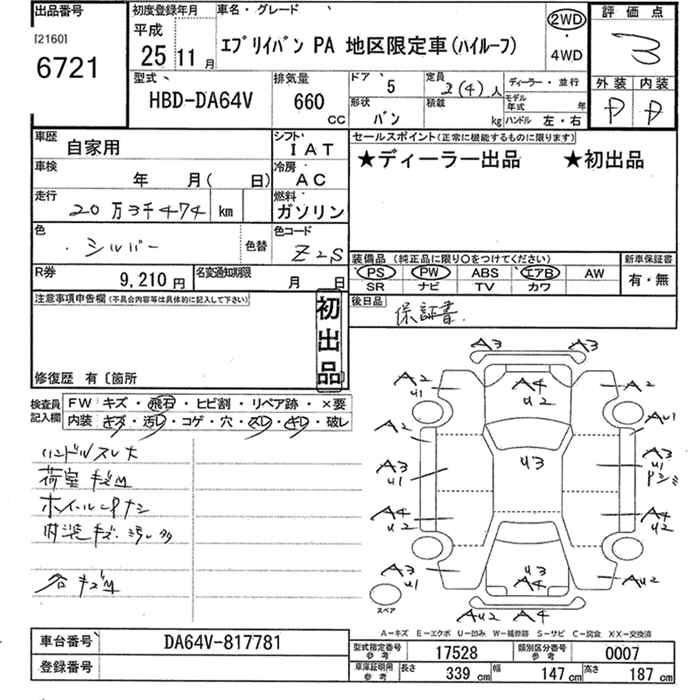 出品番号
[2160]
6721
初度登録年月
平成
25 11 月
車名・グレード
エブリイバン PA 地区限定車(ハイルーフ)
2WD
・
4WD
評価点
3
外装 内装
P P
型式
HBD-DA64V
排気量
660 CC
ドア 5
形状 バン
定員 2(4)人
積載 kg
ディーラー・並行
モデル年式 年
ハンドル 左・右
車歴
自家用
シフト
IAT
セールスポイント(正常に機能するものに限ります)
★ディーラー出品 ★初出品
車検
年 月( 日)
冷房
AC
走行
20万3千474 km
燃料
ガソリン
色
シルバー
色替
色コード
Z2S
装備品 (純正品に限り○をつけてください)
新車保証書
PS PW ABS エアB AW
有・無
SR ナビ TV カワ
R券
9,210 円
名変通知期限
月 日
後日品
保証書
注意事項申告欄(不具合内容等は具体的に記入して下さい)
初出品
修復歴 有〔箇所
検査員記入欄
FW キズ・飛石・ヒビ割・リペア跡・×要
内装 キズ・汚レ・コゲ・穴・スレ・キレ・破レ
ハンドルスレ大
荷室キズM
内装キズ、汚レ多
谷キズM
A3 A3
A2 U1
A4 U2
A2
A2
AU1
A3 U1
U3
A3 U1
A4 U2
A4 U2
A3 U1
U3 A4
AU2
AU2 A4
スペア
A−キズ E−エクボ U−凹み W−補修跡 S−サビ C−腐食 XX−交換済
車台番号
DA64V-817781
登録番号
型式指定番号 参考
17528
類別区分番号 参考
0007
車庫証明用 参考
長さ 339 cm
幅 147 cm
高さ 187 cm